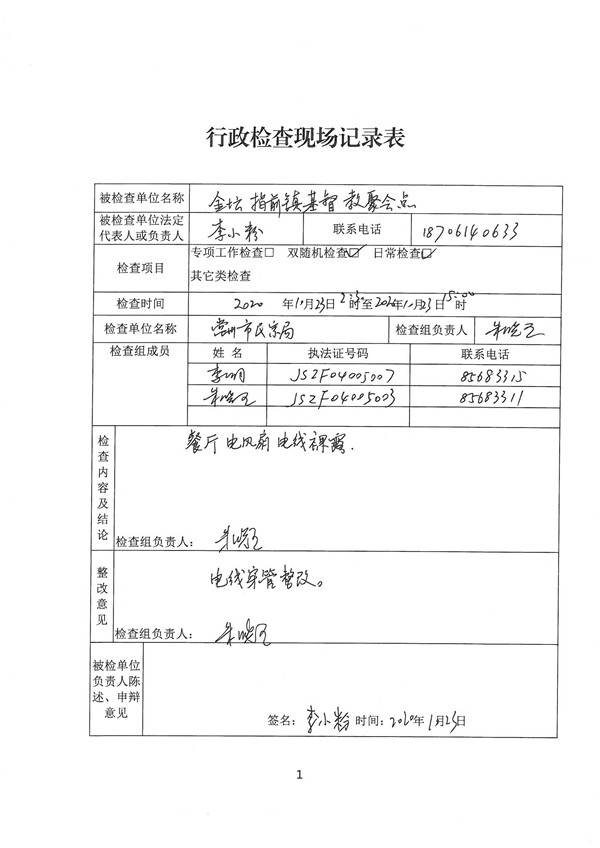 行政检查现场记录表
被检查单位名称 金坛指前镇基督教聚会点
被检查单位法定代表人或负责人 李小粉 联系电话 18706140633
检查项目 专项工作检查□ 双随机检查☑ 日常检查☑
其它类检查
检查时间 2020 年10月23日 时至2020年10月23日15:00时
检查单位名称 常州市民宗局 检查组负责人
检查组成员 姓名 执法证号码 联系电话
JSZF04005007 85683315
JSZF04005003 85683311
检查内容及结论 餐厅电风扇电线裸露.
检查组负责人:
整改意见 电线穿管整改。
检查组负责人:
被检单位负责人陈述、申辩意见
签名: 李小粉 时间: 2020年1月23日
1